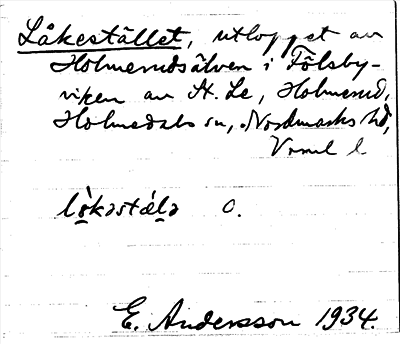 Låkestället, utloppet av
Holmerudsälven i Fölsby-
viken av St. Le, Holmerud,
Holmedals sn, Nordmarks hd,
Vrml l
lòkəstélə O.
E. Andersson 1934.